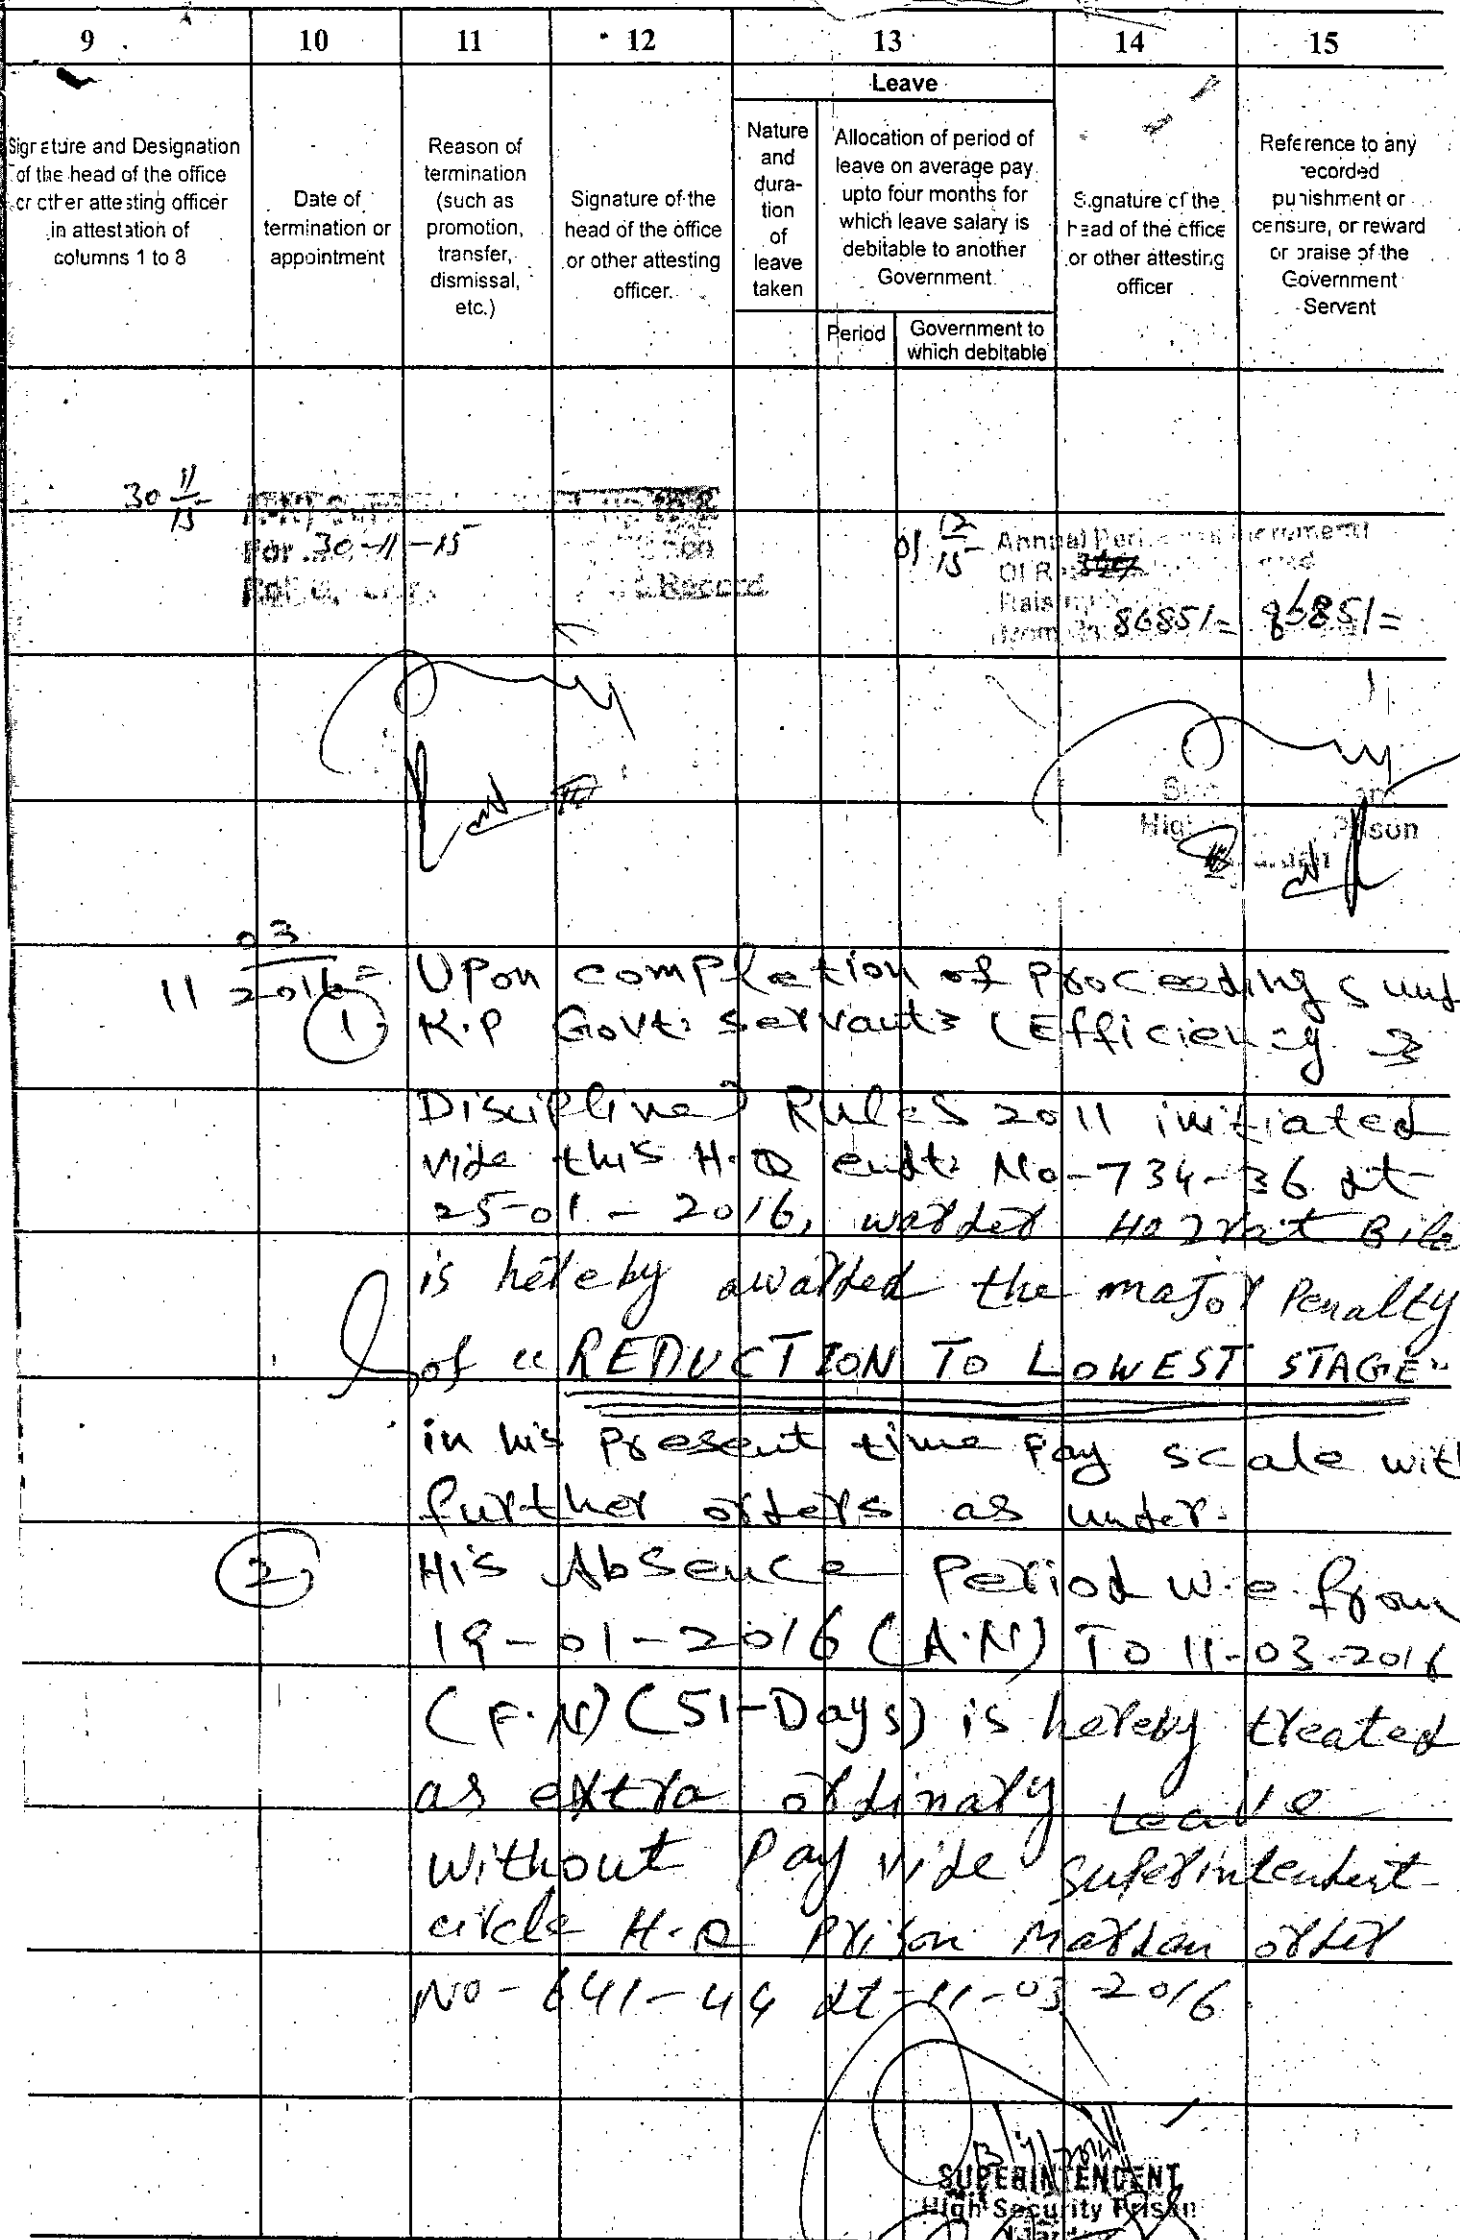 9 10 11 12 13 14 15
Leave
Signature and Designation
of the head of the office
or other attesting officer
in attestation of
columns 1 to 8
Date of
termination or
appointment
Reason of
termination
(such as
promotion,
transfer,
dismissal,
etc.)
Signature of the
head of the office
or other attesting
officer.
Nature
and
dura-
tion
of
leave
taken
Allocation of period of
leave on average pay
upto four months for
which leave salary is
debitable to another
Government
Period
Government to
which debitable
Signature of the
head of the office
or other attesting
officer
Reference to any
recorded
punishment or
censure, or reward
or praise of the
Government
Servant
30 11/15
For 30-11-15
Record
01 12/15
Annual
Of
8685/= 9685/=
Prison
11 03/2016=
① Upon completion of proceedings und
K.P Govt: Servants (Efficiency &
Discipline) Rules 2011 initiated
vide this H.Q endt: No-734-36 dt-
25-01-2016, warder Hazrat Bila
is hereby awarded the major Penalty
of "REDUCTION TO LOWEST STAGE"
in his present time pay scale wit
further orders as under.
② His Absence Period w.e from
19-01-2016 (A.N) To 11-03-2016
(F.N) (51-Days) is hereby treated
as extra ordinary Leave
without Pay vide Superintendent
circle H.Q Prison Mardan order
No-641-44 dt-11-03-2016
SUPERINTENDENT
High Security Prison